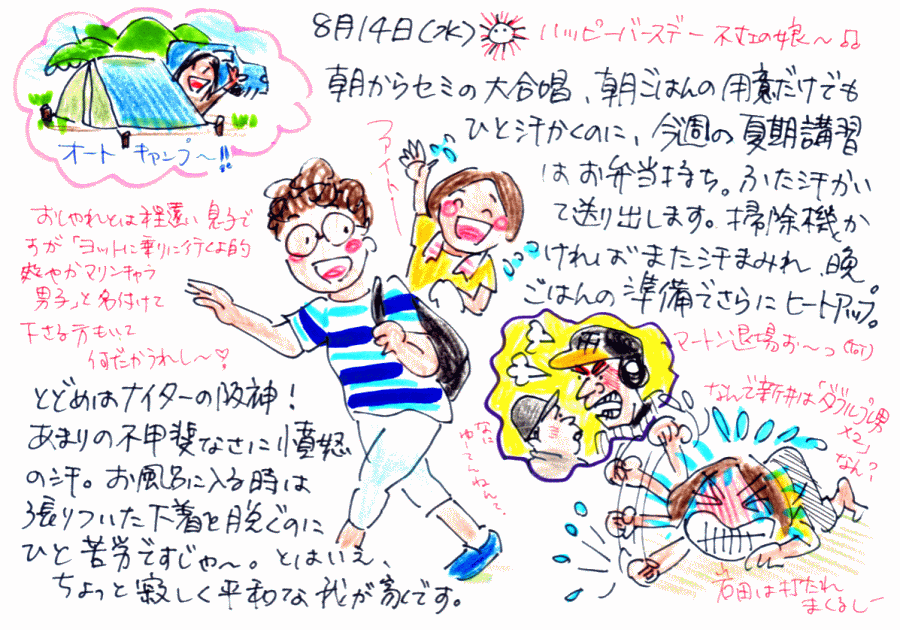 8月14日(水) ハッピーバースデー 不在の娘〜♫
朝からセミの大合唱、朝ごはんの用意だけでも
ひと汗かくのに、今週の夏期講習
はお弁当持ち。ふた汗かい
て送り出します。掃除機か
ければまた汗まみれ、晩
ごはんの準備でさらにヒートアップ。
オートキャンプ〜!!
ファイトー
おしゃれとは程遠い息子で
すが「ヨットに乗りに行くよ的
爽やかマリンキャラ
男子」と名付けて
下さる方もいて
何だかうれし〜♡
とどめはナイターの阪神!
あまりの不甲斐なさに憤怒
の汗。お風呂に入る時は
張りついた下着を脱ぐのに
ひと苦労ですじゃ〜。とはいえ、
ちょっと寂しく平和な我が家です。
マートン退場お〜っ(ToT)
なに
ゆーてんねん。
なんで新井は「ダブルプレ男
×2」
なん?
岩田は打たれ
まくるしー